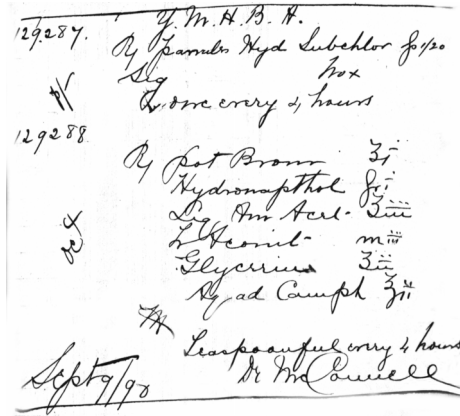 Y.M.H.B.H.
129.287.
Rx Granules Hyd Subchlor gr 1/20
Sig No x
one every 2 hours
129288
Rx Pot Brom ʒi
Hydronapthol gr i
Liq Am Acet- ʒiii
Tr Aconit- m iii
Glycerine ʒii
Aq ad Camph ʒii
M
Teaspoonful every 2 hours
Sept 9/90 Dr McConnell